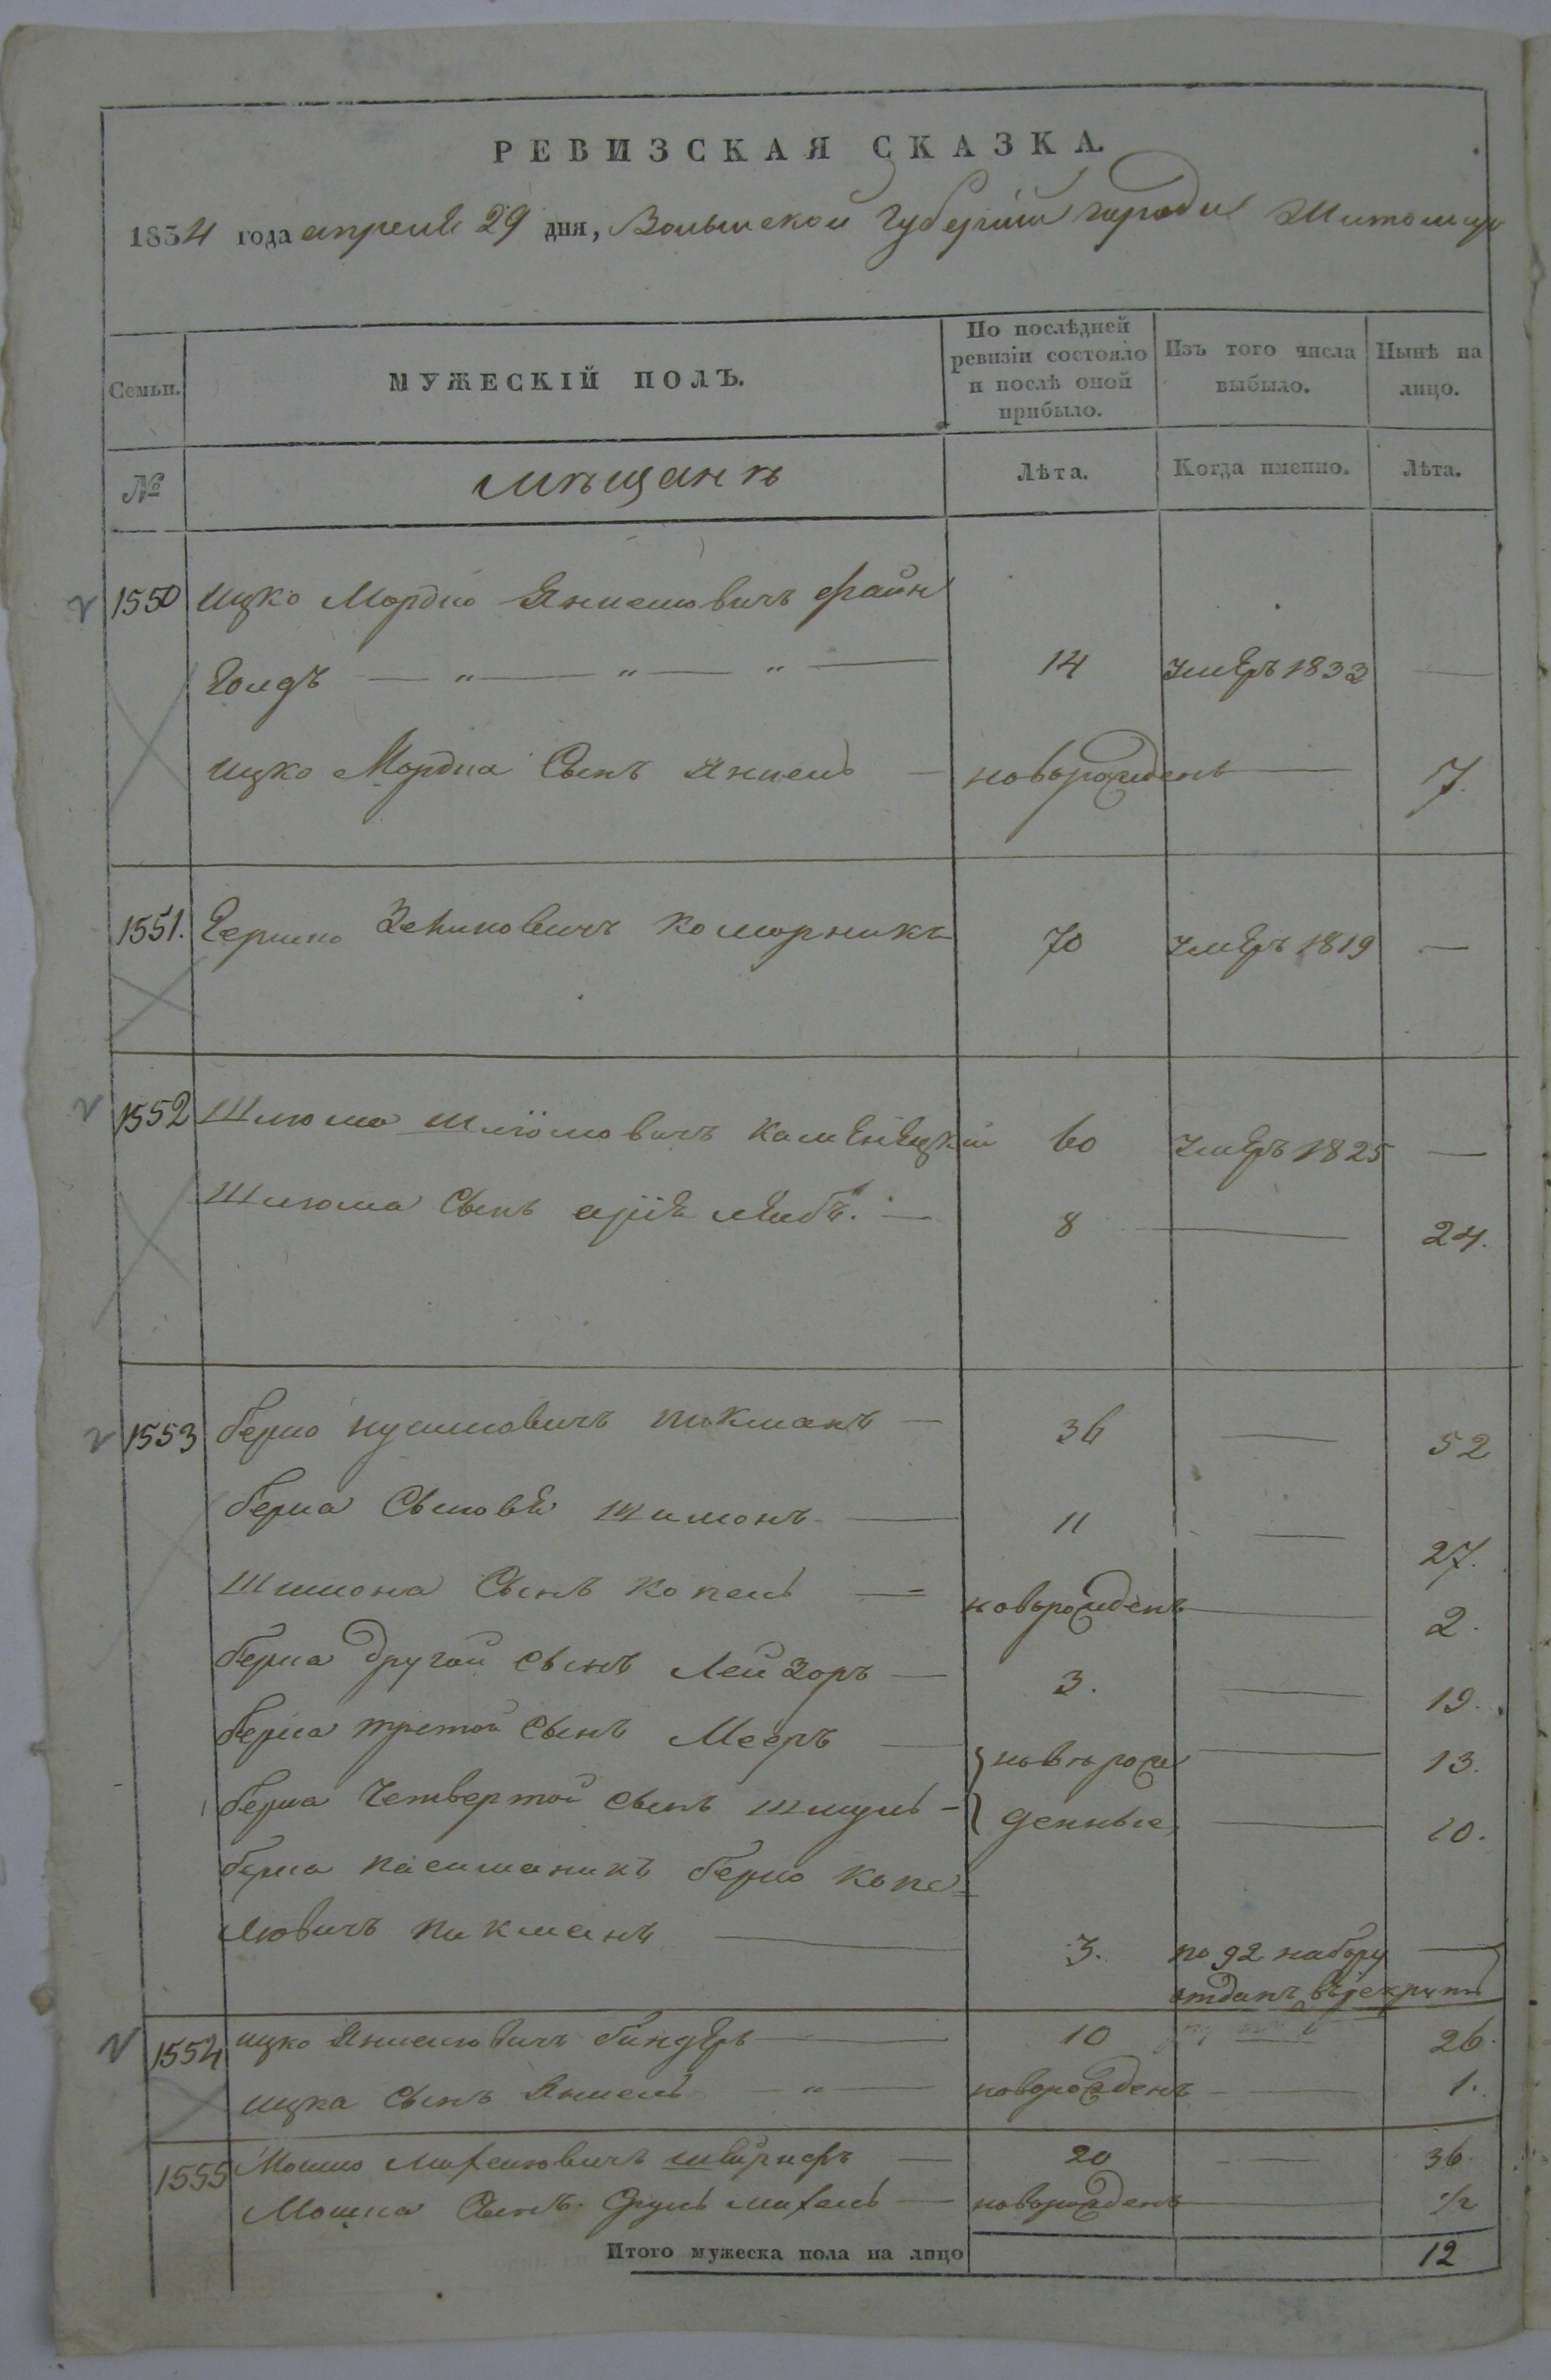 РЕВИЗСКАЯ СКАЗКА.
1834 года апреля 29 дня, Волынской Губернии города Житомира
Семьи. МУЖЕСКІЙ ПОЛЪ. По послѣдней ревизіи состояло и послѣ оной прибыло. Изъ того числа выбыло. Нынѣ на лицо.
№ мѣщанъ Лѣта. Когда именно. Лѣта.
1550 Ицко Мордко Янкелевичъ Файн
Голдъ — " — " — " — 14 умеръ 1833 —
Ицко Мордка Сынъ Янкель — новорожденъ — 7.
1551. Гершко Зельковичъ Коморникъ 70 умеръ 1819 —
1552 Шлюма Шлюмовичъ Каменецкій 60 умеръ 1825 —
Шлюма Сынъ арiе лейбъ. — 8 — 24.
1553 Берко нусимовичъ пикманъ — 36 — 52
Берка Сыновья Шимонъ — 11 — 27.
Шимона Сынъ Копель — новорожденъ — 2.
Берка другой сынъ Лейзоръ — 3. — 19.
Берка третой сынъ Мееръ — новорож — 13.
Берка Четвертой сынъ Шмуль — денные — 10.
Берка племяникъ Берко Копе=
люовичъ пикманъ — 3. по 92 набору —
отданъ въ рекруты
1554 Ицко Янкелевичъ Биндеръ — 10 — 26.
Ицка Сынъ Янкель — " — новорожденъ — 1.
1555 Мошко Михелювичъ — 20 — 36.
Мошка Сынъ Сруль михель — новорожденъ — 1/2
Итого мужеска пола на лицо 12